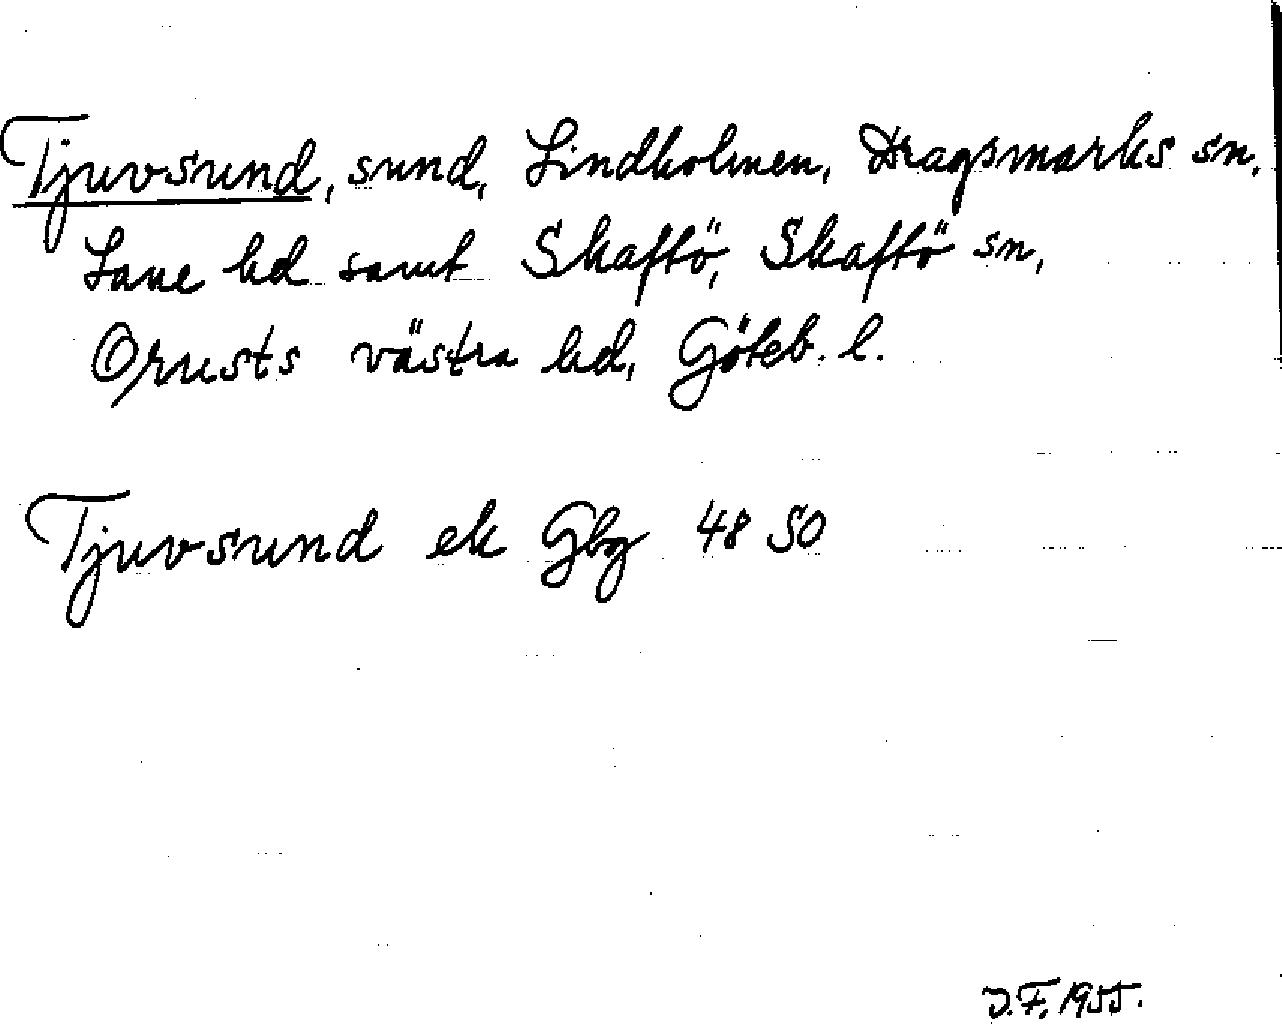 Tjuvsund, sund, Lindholmen, Dragsmarks sn,
Lane hd samt Skaftö, Skaftö sn,
Orusts västra hd, Göteb. l.
Tjuvsund ek Gbg 48 SO
J.F. 1955.